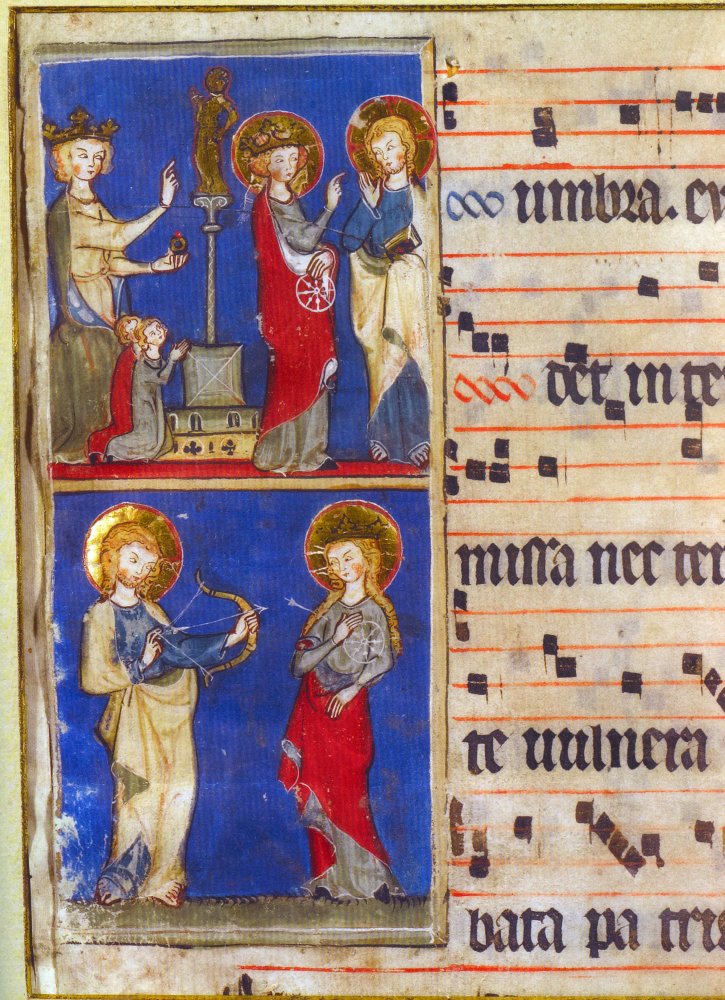 umbra. ex
det in te
missa nec ter
te vulnera
bata pa tris